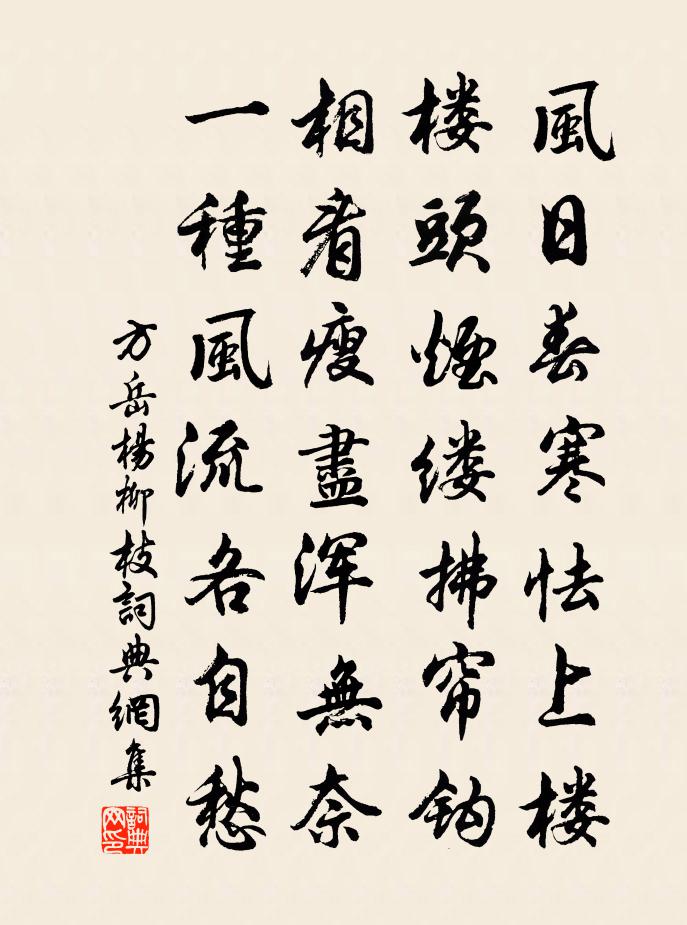 風日春寒怯上楼
楼頭煙缕拂帘钩
相看瘦盡浑無奈
一種風流各自愁
方岳楊柳枝詞典網集
詞典网印